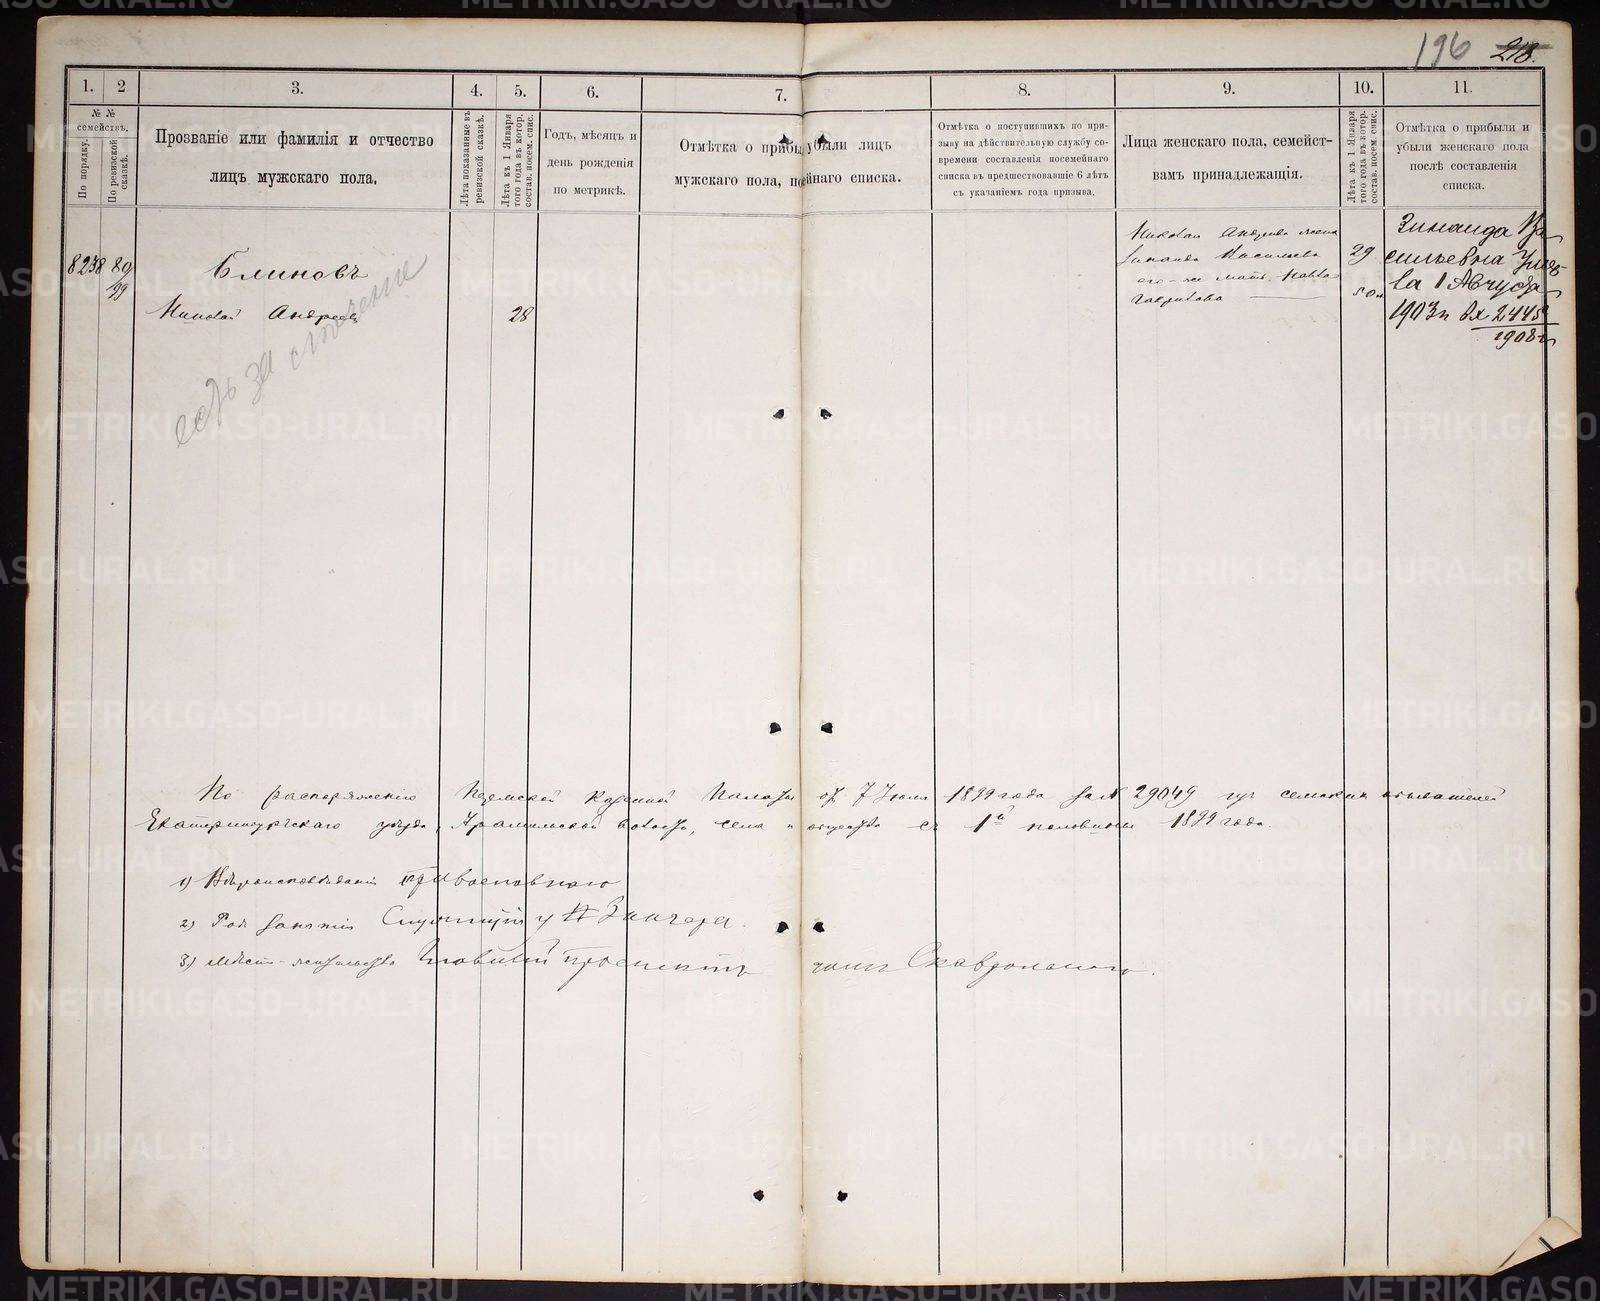 196 218.
1. 2 3. 4. 5. 6. 7. 8. 9. 10. 11.
№ №
семействъ.
По порядку.
По ревизской
сказкѣ.
Прозваніе или фамилія и отчество
лицъ мужскаго пола.
Лѣта показанные въ
ревизской сказкѣ.
Лѣта къ 1 Января
того года въ котор.
состав. посем. спис.
Годъ, мѣсяцъ и
день рожденія
по метрикѣ.
Отмѣтка о прибы убыли лицъ
мужскаго пола, по ейнаго списка.
Отмѣтка о поступившихъ по при-
зыву на дѣйствительную службу со-
времени составленія посемейнаго
списка въ предшествовавшіе 6 лѣтъ
съ указаніемъ года призыва.
Лица женскаго пола, семейст-
вамъ принадлежащія.
Лѣта къ 1 Января
того года въ котор.
состав. посем. спис.
Отмѣтка о прибыли и
убыли женскаго пола
послѣ составленія
списка.
8238 89/99 Блиновъ
Николай Андреев 28
есть за
Николая Андреева жена
Зинаида Васильева 29
его-же мать Павла
Гаврилова
Зинаида Ва
сильевна Умер
ла 1 Августа
1903 г. вх 2445
1908 г.
По распоряженію Пермской Казенной Палаты от 7 Июля 1899 года за № 29049 из сельских обывателей
Екатеринбургскаго уѣзда, Арамильской волости, села и общества съ 1й половины 1899 года.
1) Вѣроисповѣданія Православнаго
2) Род занятія Служащій у Зингера.
3) Мѣсто-жительство проспектъ домъ
METRIKI.GASO-URAL.RU